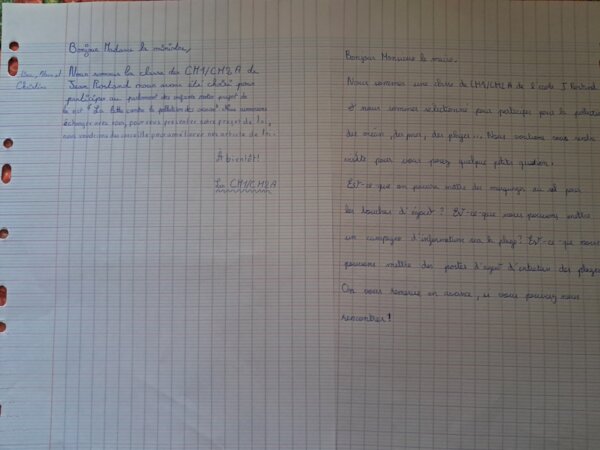 Bonjour Madame la ministre,
Nous sommes la classe des CM1/CM2 A de
Jean Rostand nous avons été choisi pour
participer au parlement des enfants notre projet de
loi est "La lutte contre la pollution des océans". Nous aimerions
échanger avec vous, pour vous présenter notre projet de loi,
nous voudrions des conseils pour améliorer nos articles de loi.
À bientôt!
Les CM1/CM2A
Bonjour Monsieur le maire.
Nous sommes une classe de CM1/CM2A de l'école J Rostand
et nous sommes sélectionné pour participer pour la pollution
des océan, des parcs, des plages... Nous voulions vous rendre
visite pour vous posez quelque petits question.
Est-ce-que on pourra mettre des marquage au sol pour
les bouches d'égout? Est-ce-que nous pouvons mettre
un campagne d'information sur la plage? Est-ce que nous
pouvons mettre des postes d'agent d'entretien des plages
On vous remercie en avance, si vous pouvez nous
rencontrer!